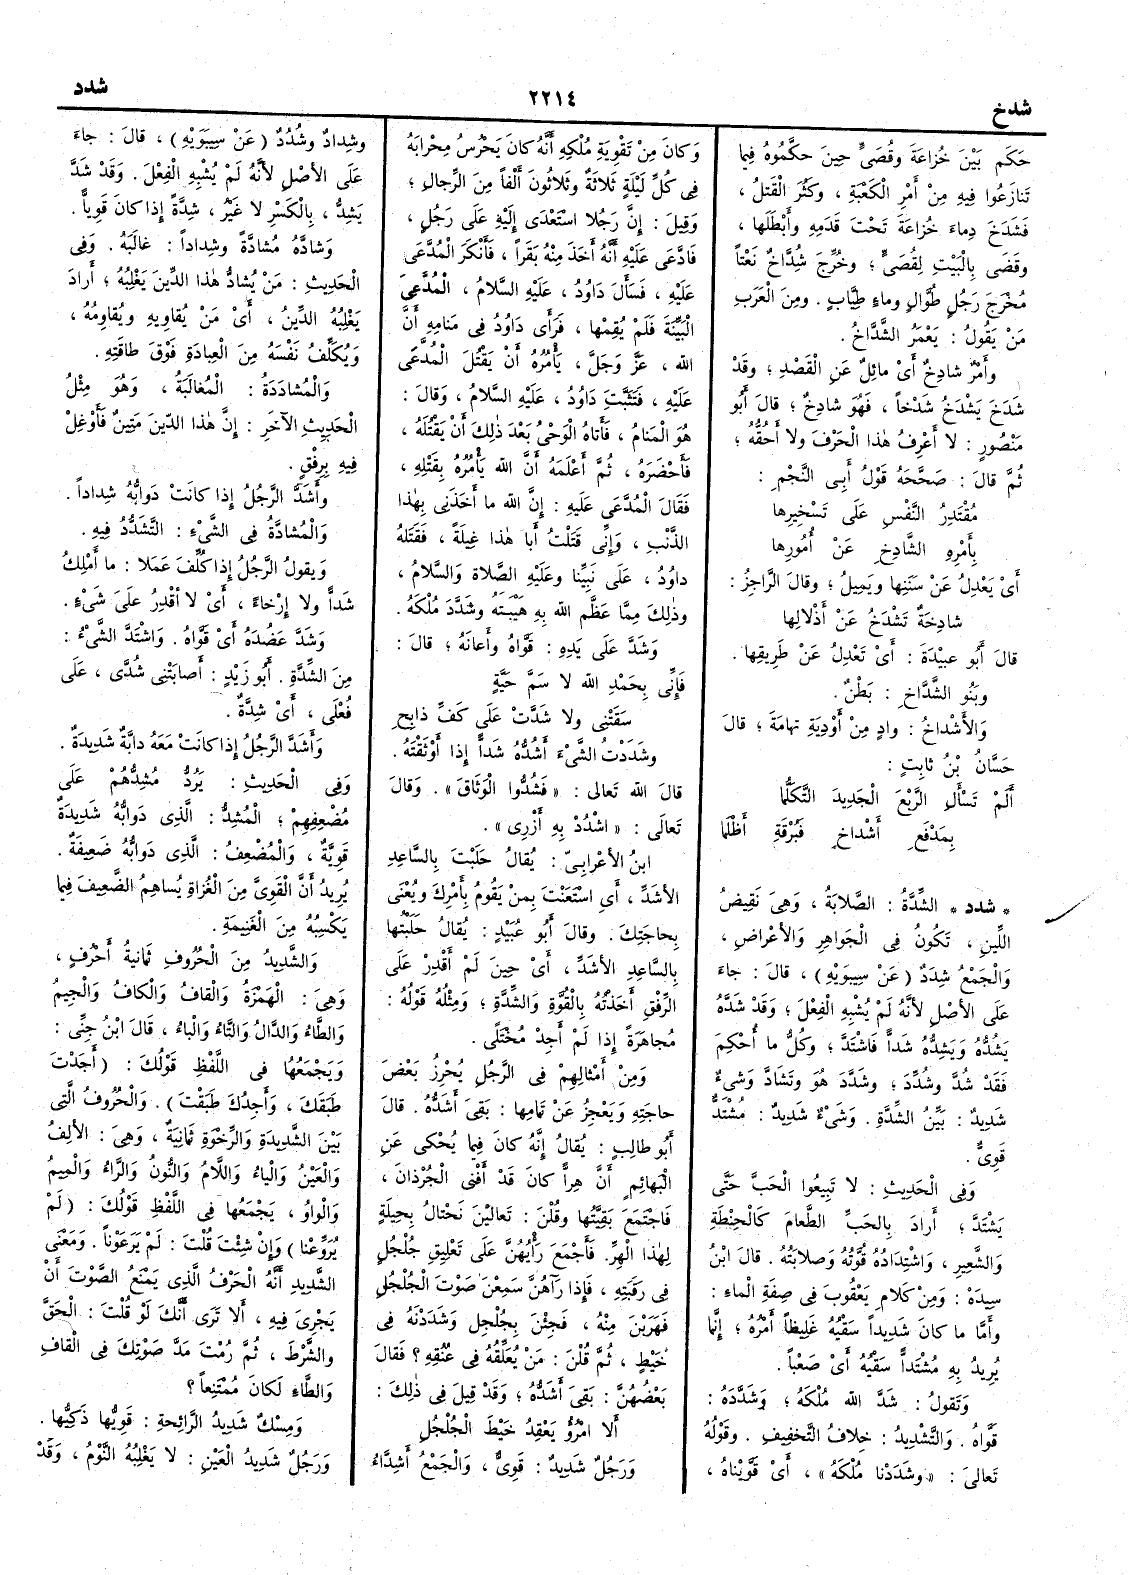 شدخ
٢٢١٤
شدد
حَكَم بَيْنَ خُزاعَةَ وقُصَىٍّ حِينَ حكَّمُوهُ فِيما
تَنازَعُوا فِيهِ مِنْ أَمْرِ الْكَعْبَةِ ، وكَثُرَ الْقَتْلُ ،
فَشَدَخَ دِماءَ خُزاعَةَ تَحْتَ قَدَمِهِ وأَبْطَلَها ،
وقَضَى بِالْبَيْتِ لِقُصَىٍّ ؛ وخُرِّجَ شُدَّاخٌ نَعْتاً
مُخْرَجَ رَجُلٍ طُوَّالٍ وماءٍ طِيَّابٍ . ومِنَ الْعَرَبِ
مَنْ يَقُولُ : يَعْمَرُ الشَّدَّاخُ .
وأَمْرٌ شادِخٌ أَىْ مائِلٌ عَنِ الْقَصْدِ ؛ وقَدْ
شَدَخَ يَشْدَخُ شَدْخاً ، فَهُوَ شادِخٌ ؛ قالَ أَبُو
مَنْصُورٍ : لا أَعْرِفُ هٰذا الْحَرْفَ ولا أَحُقُّهُ ؛
ثُمَّ قالَ : صَحَّحَهُ قَوْلُ أَبِى النَّجْمِ :
مُقْتَدِرُ النَّفْسِ عَلَى تَسْخِيرِها
بِأَمْرِهِ الشَّادِخِ عَنْ أُمُورِها
أَىْ يَعْدِلُ عَنْ سَنَنِها ويَمِيلُ ؛ وقالَ الرَّاجِزُ :
شادِخَةٌ تَشْدَخُ عَنْ أَذْلالِها
قالَ أَبُو عبيْدَةَ : أَىْ تَعْدِلُ عَنْ طَرِيقِها .
وبَنُو الشَّدَّاخِ : بَطْنٌ .
وَالأَشْداخُ : وادٍ مِنْ أَوْدِيَةِ تِهامَةَ ؛ قالَ
حَسَّانُ بْنُ ثابِتٍ :
أَلَمْ تَسْأَلِ الرَّبْعَ الْجَدِيدَ التَّكَلُّما
بِمَدْفَعِ أَشْداخٍ فَبُرْقَةِ أَظْلَما
* شدد * الشِّدَّةُ : الصَّلابَةُ ، وَهِىَ نَقِيضُ
اللِّينِ ، تَكُونُ فِى الْجَواهِرِ وَالأَعْراضِ ،
وَالْجَمْعُ شِدَدٌ (عَنْ سِيبَوَيْهِ) ، قالَ : جاءَ
عَلَى الأَصْلِ لأَنَّهُ لَمْ يُشْبِهِ الْفِعْلَ ؛ وَقَدْ شَدَّهُ
يَشُدُّهُ وَيَشِدُّهُ شَداًّ فَاشْتَدَّ ؛ وكُلُّ ما أُحْكِمَ
فَقَدْ شُدَّ وشُدِّدَ ؛ وشَدَّدَ هُوَ وتَشادَّ وَشَىْءٌ
شَدِيدٌ : بَيِّنُ الشِّدَّةِ . وشَىْءٌ شَدِيدٌ : مُشْتَدٌّ
قَوِىٌّ .
وَفِى الْحَدِيثِ : لا تَبِيعُوا الْحَبَّ حَتَّى
يَشْتَدَّ ؛ أَرادَ بِالْحَبِّ الطَّعامَ كَالْحِنْطَةِ
وَالشَّعِيرِ ، وَاشْتِدَادُهُ قُوَّتُهُ وَصَلابَتُهُ . قالَ ابْنُ
سِيدَهْ : وَمِنْ كَلامِ يَعْقُوبَ فِى صِفَةِ الْماءِ :
وأَمَّا ما كانَ شَدِيداً سَقْيُهُ غَلِيظاً أَمْرُهُ ؛ إِنَّما
يُرِيدُ بِهِ مُشْتَداًّ سَقْيُهُ أَىْ صَعْباً .
وَتَقُولُ : شَدَّ اللهُ مُلْكَهُ ؛ وَشَدَّدَهُ :
قَوَّاهُ . وَالتَّشْدِيدُ : خِلافُ التَّخْفِيفِ . وقَوْلُهُ
تَعالَىَ : «وشَدَدْنا مُلْكَهُ» ، أَىْ قَوَّيْناهُ ،
وَكانَ مِنْ تَقْوِيَةِ مُلْكِهِ أَنَّهُ كانَ يَحْرُسُ مِحْرابَهُ
فِى كُلِّ لَيْلَةٍ ثَلاثَةٌ وثَلاثُونَ أَلْفاً مِنَ الرِّجالِ ؛
وَقِيلَ : إِنَّ رَجُلاً اسْتَعْدَى إِلَيْهِ عَلَى رَجُلٍ ،
فَادَّعَى عَلَيْهِ أَنَّهُ أَخَذَ مِنْهُ بَقَراً ، فَأَنْكَرَ الْمُدَّعَى
عَلَيْهِ ، فَسَأَلَ دَاوُدُ ، عَلَيْهِ السَّلامُ ، الْمُدَّعِىَ
الْبَيِّنَةَ فَلَمْ يُقِمْها ، فَرَأَى دَاوُدُ فِى مَنامِهِ أَنَّ
الله ، عَزَّ وَجَلَّ ، يَأْمُرُهُ أَنْ يَقْتُلَ الْمُدَّعَى
عَلَيْهِ ، فَتَثَبَّتَ دَاوُدُ ، عَلَيْهِ السَّلامُ ، وَقالَ :
هُوَ الْمَنامُ ، فَأَتاهُ الْوَحْىُ بَعْدَ ذٰلِكَ أَنْ يَقْتُلَهُ ،
فَأَحْضَرَهُ ، ثُمَّ أَعْلَمَهُ أَنَّ اللهَ يَأْمُرُهُ بِقَتْلِهِ ،
فَقالَ الْمُدَّعَى عَلَيْهِ : إِنَّ اللهَ ما أَخَذَنِى بِهٰذا
الذَّنْبِ ، وَإِنِّى قَتَلْتُ أَبا هٰذا غِيلَةً ، فَقَتَلَهُ
داوُدُ ، عَلَى نَبِيِّنا وعَلَيْهِ الصَّلاةُ وَالسَّلامُ ،
وذٰلِكَ مِمَّا عَظَّمَ اللهُ بِهِ هَيْبَتَهُ وشَدَّدَ مُلْكَهُ .
وَشَدَّ عَلَى يَدِهِ : قَوَّاهُ وأَعانَهُ ؛ قالَ :
فَإِنِّى بِحَمْدِ اللهِ لا سَمَّ حَيَّةٍ
سَقَتْنِى ولا شَدَّتْ عَلَى كَفِّ ذابِحِ
وشَدَدْتُ الشَّىْءَ أَشُدُّهُ شَداًّ إِذا أَوْثَقْتَهُ .
قالَ اللهُ تَعالَى : «فَشُدُّوا الْوَثَاقَ» . وَقالَ
تَعالَى : «اشْدُدْ بِهِ أَزْرِى» .
ابنُ الأَعْرابِىِّ : يُقالُ حَلَبْتَ بِالسَّاعِدِ
الأَشَدِّ ، أَىِ اسْتَعَنْتَ بِمنْ يَقُومُ بِأَمْرِكَ ويُعْنَى
بِحاجَتِكَ . وقالَ أَبُو عُبَيْدٍ : يُقالُ حَلَبْتُها
بِالسَّاعِدِ الأَشَدِّ ، أَىْ حِينَ لَمْ أَقْدِرْ عَلَى
الرِّفْقِ أَخَذْتُهُ بِالْقُوَّةِ وَالشِّدَّةِ ؛ وَمِثْلُهُ قَوْلُهُ :
مُجاهَرَةً إِذا لَمْ أَجِدْ مُخْتَلًى .
وَمِنْ أَمْثالِهِمْ فِى الرَّجُلِ يُحْرِزُ بَعْضَ
حاجَتِهِ وَيَعْجِزُ عَنْ تَمامِها : بَقِىَ أَشَدُّهُ . قالَ
أَبُو طالِبٍ : يُقالُ إِنَّهُ كانَ فِيما يُحْكَى عَنِ
الْبَهائِمِ أَنَّ هِراًّ كانَ قَدْ أَفْنَى الْجُرْذانَ ،
فَاجْتَمَعَ بَقِيَّتُها وقُلْنَ : تَعالَيْنَ نَحْتالُ بِحِيلَةٍ
لِهٰذا الْهِرِّ . فَأَجْمَعَ رَأْيُهُنَّ عَلَى تَعْلِيقِ جُلْجُلٍ
فِى رَقَبَتِهِ ، فَإِذا رَآهُنَّ سَمِعْنَ صَوْتَ الْجُلْجُلِ
فَهَرَبْنَ مِنْهُ ، فَجِئْنَ بِجُلْجُلٍ وَشَدَدْنَهُ فِى
خَيْطٍ ، ثُمَّ قُلْنَ : مَنْ يُعَلِّقُهُ فِى عُنُقِهِ ؟ فَقالَ
بَعْضُهُنَّ : بَقِىَ أَشَدُّهُ ؛ وَقَدْ قِيلَ فِى ذٰلِكَ :
أَلا امْرُؤٌ يَعْقِدُ خَيْطَ الْجُلْجُلِ
وَرَجُلٌ شَدِيدٌ : قَوِىٌّ ، وَالْجَمْعُ أَشِدَّاءُ
وشِدادٌ وشُدُدٌ (عَنْ سِيبَوَيْهِ) ، قالَ : جاءَ
عَلَى الأَصْلِ لأَنَّهُ لَمْ يُشْبِهِ الْفِعْلَ . وَقَدْ شَدَّ
يَشِدُّ ، بِالْكَسْرِ لا غَيْرُ ، شِدَّةً إِذا كانَ قَوِياًّ .
وَشادَّهُ مُشادَّةً وشِداداً : غالَبَهُ . وَفِى
الْحَدِيثِ : مَنْ يُشادُّ هٰذا الدِّينَ يَغْلِبُهُ ؛ أَرادَ
يَغْلِبُهُ الدِّينُ ، أَىْ مَنْ يُقاوِيهِ ويُقاوِمُهُ ،
وَيُكَلِّفُ نَفْسَهُ مِنَ الْعِبادَةِ فَوْقَ طاقَتِهِ .
وَالْمُشادَدَةُ : الْمُغالَبَةُ ، وَهُوَ مِثْلُ
الْحَدِيثِ الآخَرِ : إِنَّ هٰذا الدِّينَ مَتِينٌ فَأَوْغِلْ
فِيهِ بِرِفْقٍ .
وأَشَدَّ الرَّجُلُ إِذا كانَتْ دَوابُّهُ شِداداً .
وَالْمُشادَّةُ فِى الشَّىْءِ : التَّشَدُّدُ فِيهِ .
وَيقولُ الرَّجُلُ إِذا كُلِّفَ عَمَلاً : ما أَمْلِكُ
شَداًّ ولا إِرْخاءً ، أَىْ لا أَقْدِرُ عَلَى شَىْءٍ .
وَشَدَّ عَضُدَهُ أَىْ قَوَّاهُ . وَاشْتَدَّ الشَّىْءُ :
مِنَ الشِّدَّةِ . أَبُو زَيْدٍ : أَصابَتْنِى شُدَّى ، عَلَى
فُعْلَى ، أَىْ شِدَّةٌ .
وَأَشَدَّ الرَّجُلُ إِذا كانَتْ مَعَهُ دابَّةٌ شَدِيدَةٌ .
وَفِى الْحَدِيثِ : يَرُدُّ مُشِدُّهُمْ عَلَى
مُضْعِفِهِمْ ؛ الْمُشِدُّ : الَّذِى دَوابُّهُ شَدِيدَةٌ
قَوِيَّةٌ ، وَالْمُضْعِفُ : الَّذِى دَوابُّهُ ضَعِيفَةٌ .
يُرِيدُ أَنَّ الْقَوِىَّ مِنَ الْغُزاةِ يُساهِمُ الضَّعِيفَ فِيما
يَكْسِبُهُ مِنَ الْغَنِيمَةِ .
وَالشَّدِيدُ مِنَ الْحُرُوفِ ثَمانِيَةُ أَحْرُفٍ ،
وَهِىَ : الْهَمْزَةُ وَالْقافُ وَالْكافُ وَالْجِيمُ
وَالطَّاءُ وَالدَّالُ وَالتَّاءُ وَالْباءُ ، قالَ ابْنُ جِنِّى :
وَيَجْمَعُها فِى اللَّفْظِ قَوْلُكَ : (أَجَدْتَ
طَبَقَكَ ، وَأَجِدُكَ طَبَقْتَ) . وَالْحُرُوفُ الَّتِى
بَيْنَ الشَّدِيدَةِ وَالرِّخْوَةِ ثَمانِيَةٌ ، وَهِىَ : الأَلِفُ
وَالْعَيْنُ وَالْياءُ وَاللَّامُ وَالنُّونُ وَالرَّاءُ وَالْمِيمُ
وَالْواوُ ، يَجْمَعُها فِى اللَّفْظِ قَوْلُكَ : (لَمْ
يُرَوِّعْنا) وَإِنْ شِئْتَ قُلْتَ : لَمْ يَرَعَوْناً . وَمَعْنَى
الشَّدِيدِ أَنَّهُ الْحَرْفُ الَّذِى يَمْنَعُ الصَّوْتَ أَنْ
يَجْرِىَ فِيهِ ، أَلا تَرَى أَنَّكَ لَوْ قُلْتَ : الْحَقَّ
والشَّرْطَ ، ثُمَّ رُمْتَ مَدَّ صَوْتِكَ فِى الْقافِ
وَالطَّاءِ لَكانَ مُمْتَنِعاً ؟
وَمِسْكٌ شَدِيدُ الرَّائِحَةِ : قَوِيُّها ذَكِيُّها .
وَرَجُلٌ شَدِيدُ الْعَيْنِ : لا يَغْلِبُهُ النَّوْمُ ، وَقَدْ